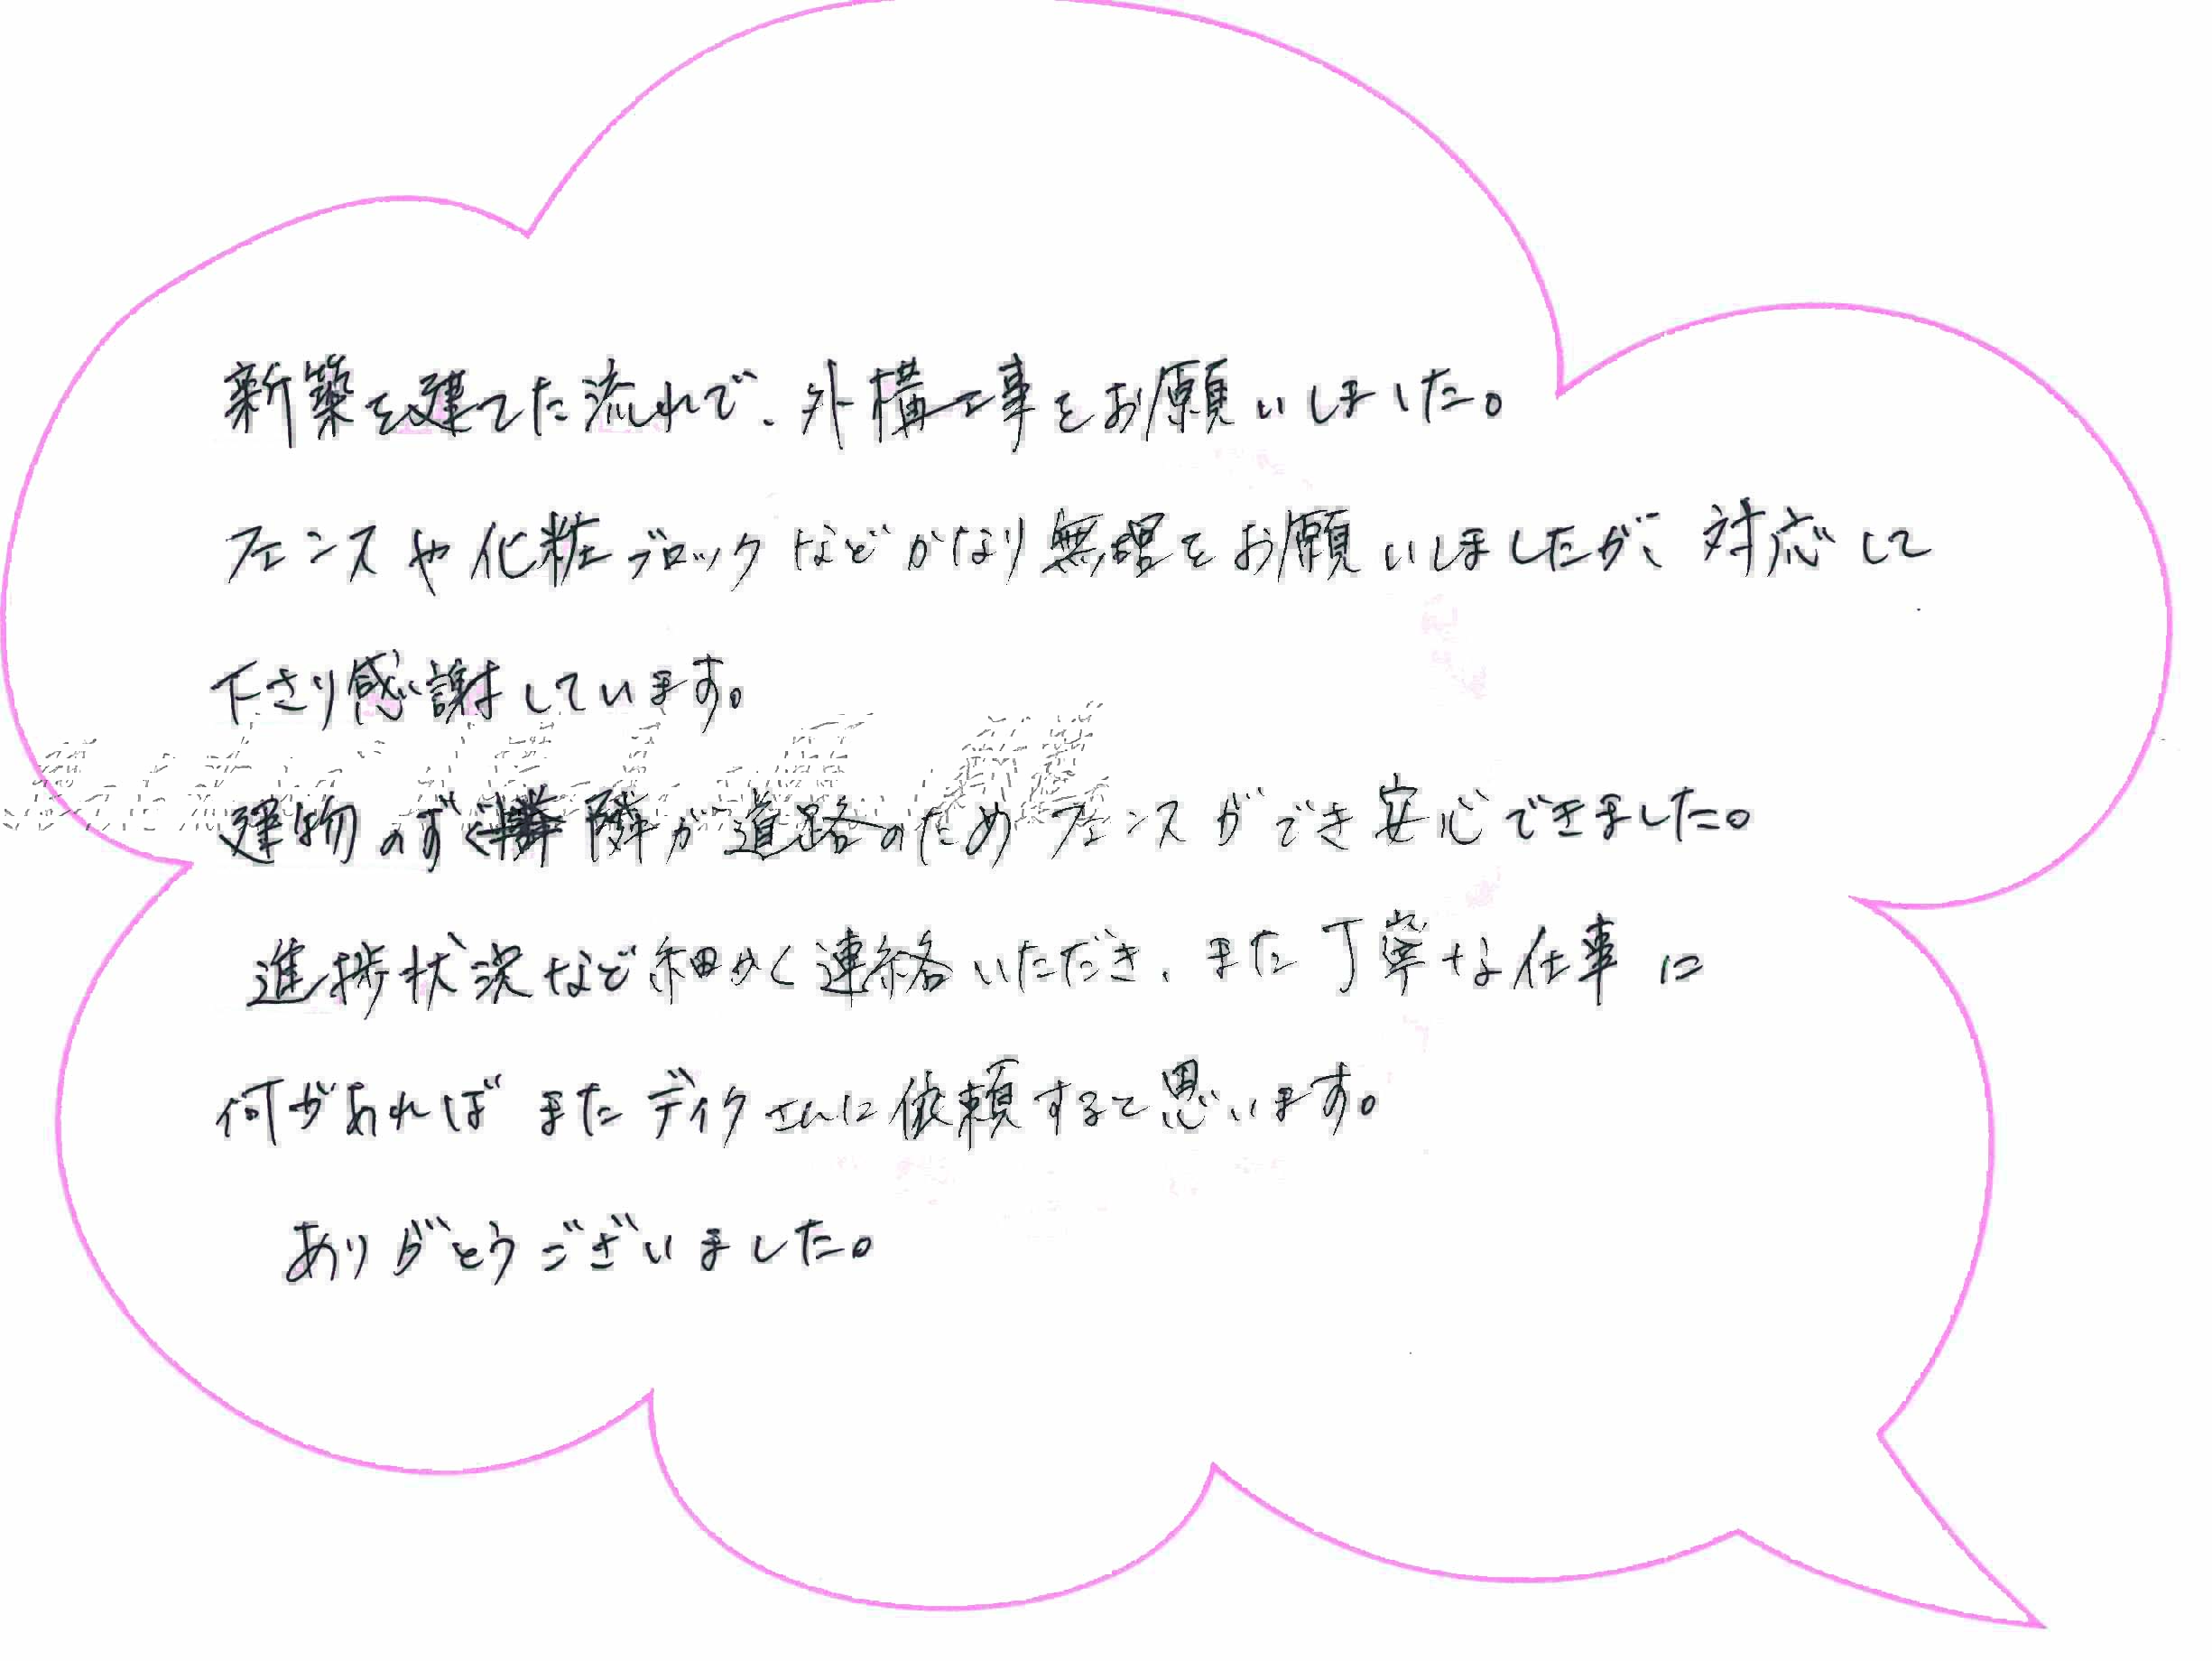 新築を建てた流れで、外構工事をお願いしました。
フェンスや化粧ブロックなどかなり無理をお願いしましたが、対応して
下さり感謝しています。
建物のすぐ隣が道路のためフェンスができ安心できました。
進捗状況など細かく連絡いただき、また丁寧な仕事に
何かあればまたディクさんに依頼すると思います。
ありがとうございました。